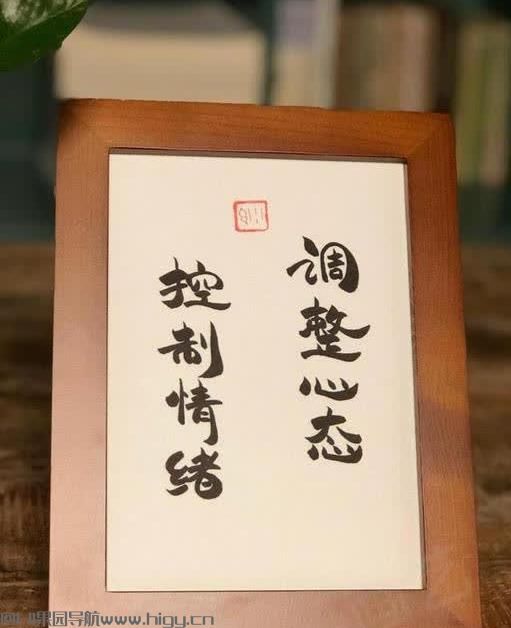 调整心态
控制情绪
果园导航www.higy.cn